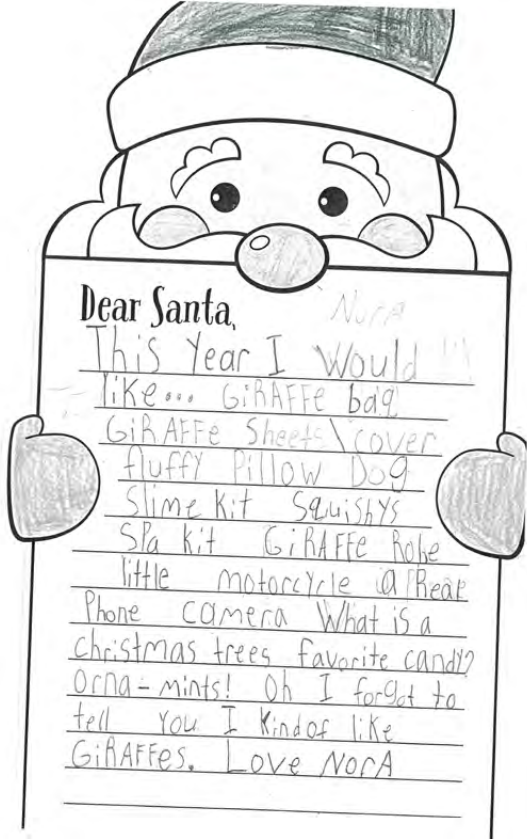 Dear Santa,
NorA
This Year I Would
like... GiRAFFe bag
GiRAFFe Sheets\cover
fluffy Pillow Dog
Slime kit Squishys
Spa kit GiRAFFe Robe
little motorcycle a Real
Phone camera What is a
christmas trees favorite candy?
Orna-mints! Oh I forgot to
tell you I Kindof like
GiRAFFes. Love NorA